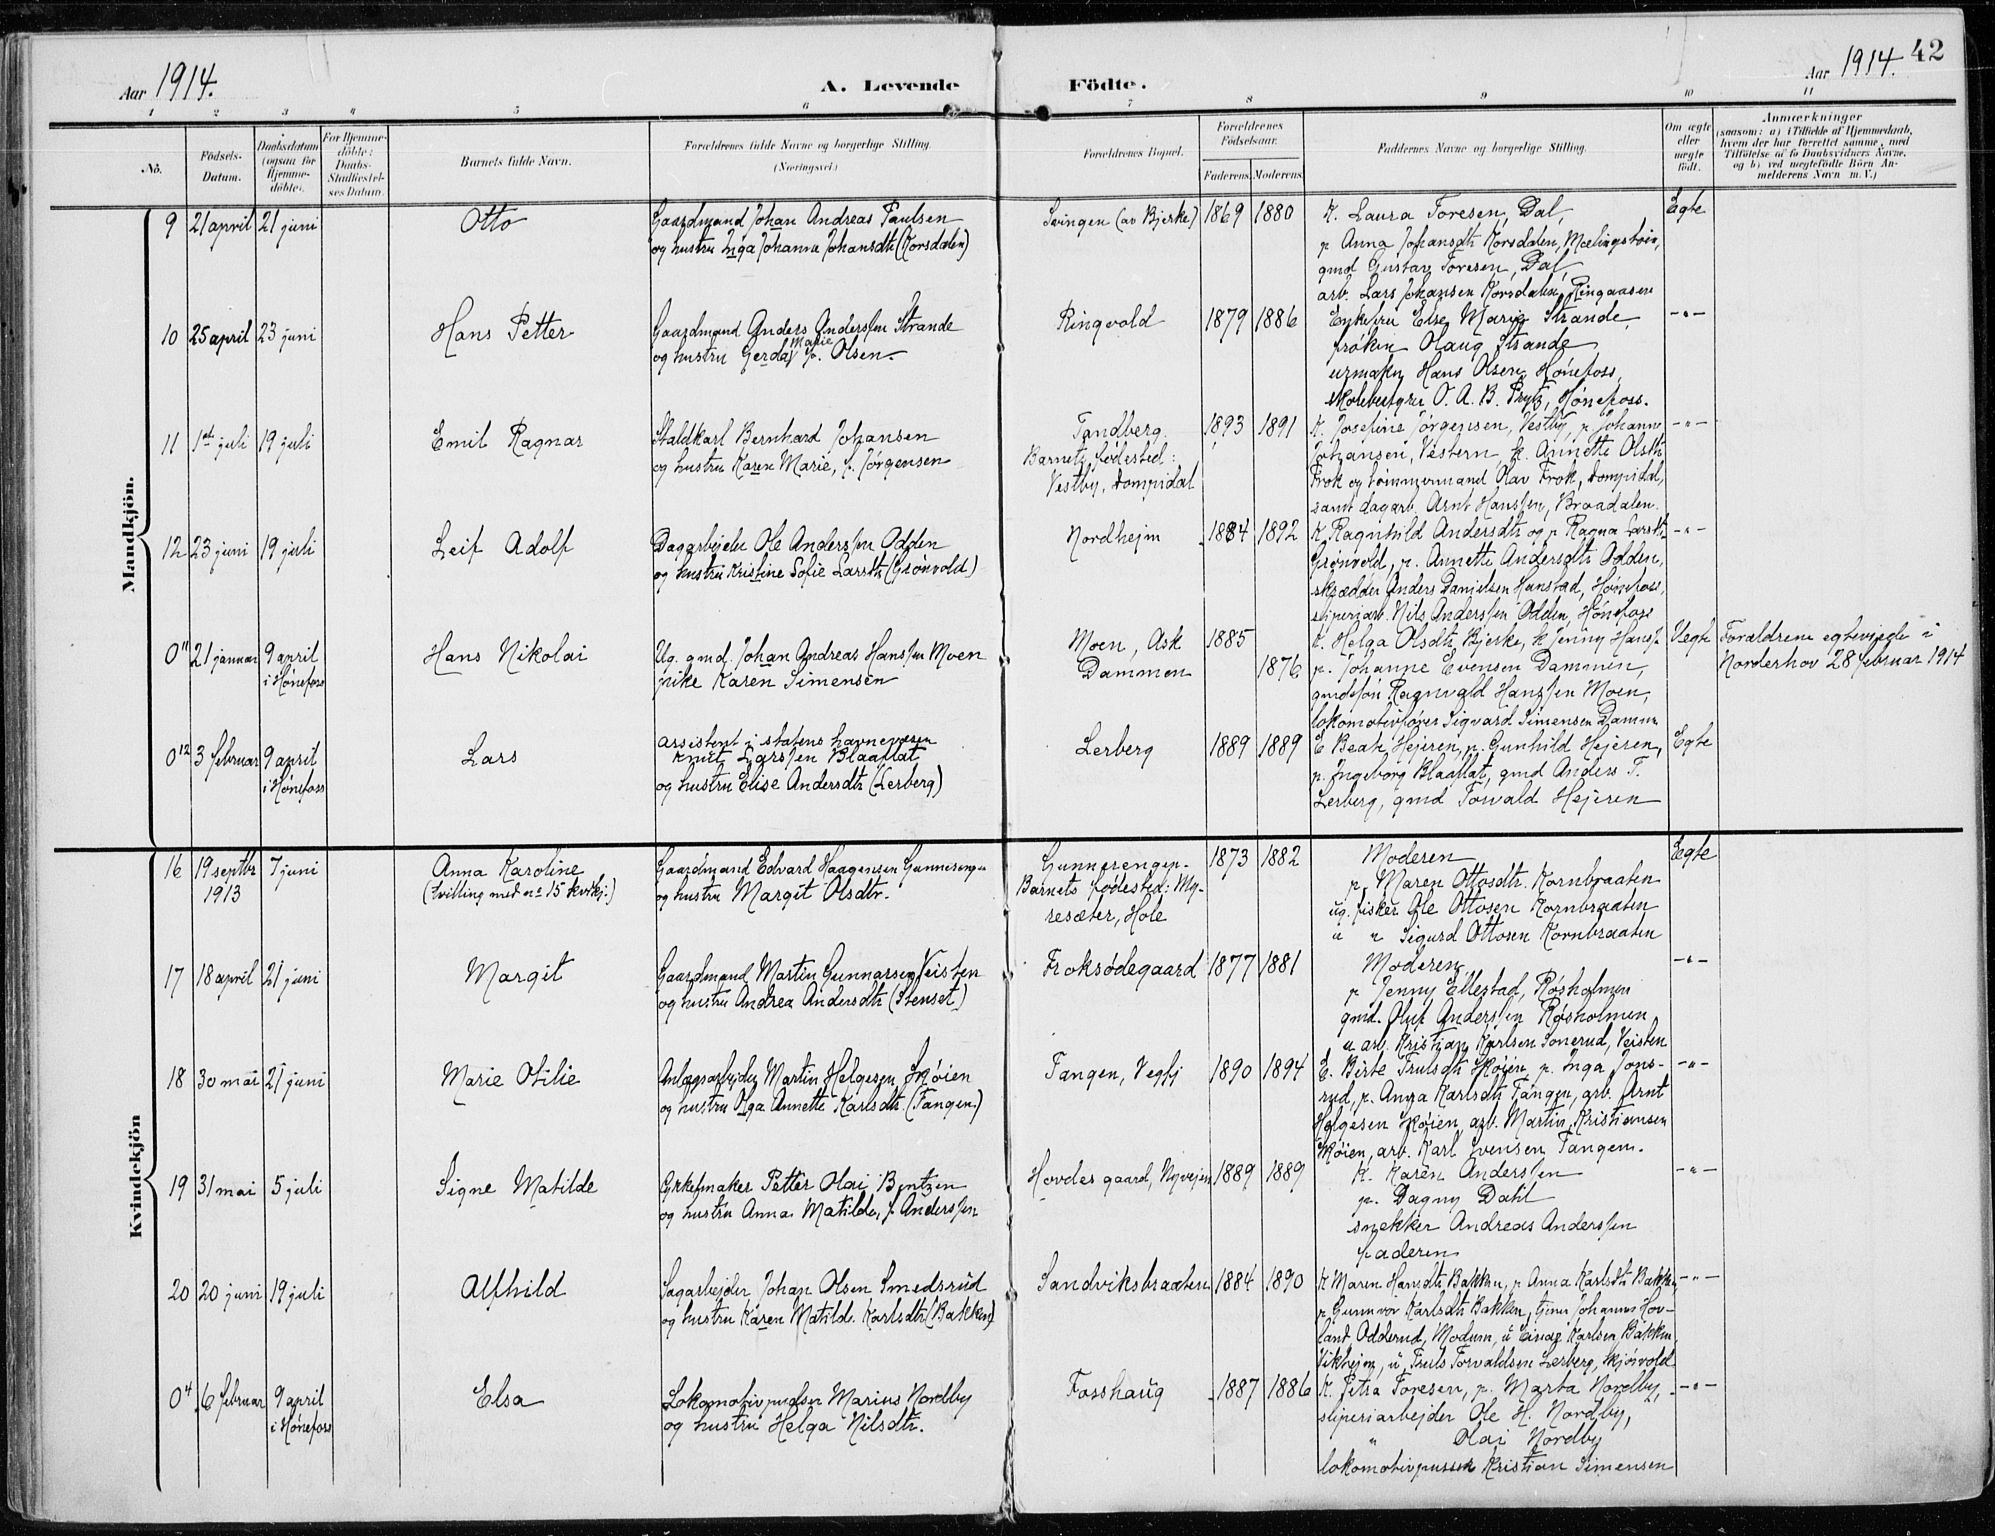 Aar 1914.
A. Levende
Födte.
Aar 1914.
42
1 2 3 4 5 6 7 8 9 10 11
No.
Födsels-
Datum.
Daabsdatum
(ogsaa for
Hjemme-
döbte).
For Hjemme-
döbte:
Daabs-
Stadfæstel-
ses Datum.
Barnets fulde Navn.
Forældrenes fulde Navne og borgerlige Stilling.
(Næringsvei.)
Forældrenes Bopæl.
Forældrenes
Födselsaar.
Faderens. Moderens.
Faddernes Navne og borgerlige Stilling.
Om ægte
eller
uægte
født.
Anmærkninger
(saasom: a) i Tilfælde af Hjemmedaab,
hvem der har forrettet samme, med
Tilföielse af to Daabsvidners Navne,
og b) ved uægtefödte Börn An-
melderens Navn m. V.)
Mandkjön.
9 21 april 21 juni Otto
Gaardmand Johan Andreas Paulsen
og hustru Inga Johanna Johansdtr (Korsdalen)
Svingen (av Bjerke) 1869 1880
K. Laura Toresen, Dal,
p Anna Johansdtr Korsdalen,
gmd Gustav Toresen, Dal,
arb. Lars Johansen Korsdalen, Ringaasen
Egte
10 25 april 23 juni Hans Petter
Gaardmand Anders Anderssen Strande
og hustru Gerda Marie f. Olsen.
Ringvold 1879 1886
Enkefru Else Marie Strande,
frøken Olaug Strande
urmaker Hans Olsen, Hønefoss,
skolebestyrer O. A. B. Prytz, Hønefoss.
-"-
11 1st juli 19 juli Emil Ragnar
Staldkarl Bernhard Johansen
og hustru Karen Marie, f. Jørgensen
Tandberg.
Barnets fødested:
Vestby, Dompidal
1893 1891
K. Josefine Jørgensen, Vestby, p. Johanne
Johansen, Vestern, k. Annette Olsdtr
Frok og tømmermand Olav Frok, Dompidal,
samt dagarb. Arnt Hanssen, Braadalen.
-"-
12 23 juni 19 juli Leif Adolf
Dagarbejder Ole Anderssen Odden
og hustru Kristine Sofie Larsdtr (Grønvold)
Nordhejm 1884 1892
K. Ragnhild Andersdtr og p Ragna Larsdtr
Grønvold, p. Annette Andersdtr Odden,
skrædder Anders Danielsen Hanstad, Hønefoss,
sliperiarb. Nils Anderssen Odden, Hønefoss
-"-
0 11 21 januar 9 april
i Hønefoss
Hans Nikolai
Ug. gmd. Johan Andreas Hanssen Moen
pike Karen Simensen
Moen, Ask 1885
Dammen 1876
K. Helga Olsdtr Bjerke, k Jenny Hanss.
p. Johanne Evensen Dammen,
gmdsøn Ragnvald Hanssen Moen,
lokomotivfører Sigvard Simensen Dammen
Uegte
Forældrene egteviede i
Norderhov 28 februar 1914
0 12 3 februar 9 april
i Hønefoss
Lars
Assistent i statens havnevæsen
Knut Larssen Blaaflat
og hustru Elise Andersdtr (Lerberg)
Lerberg 1889 1889
E Beate Hejeren, p. Gunhild Hejeren,
p. Ingeborg Blaaflat, gmd Anders T.
Lerberg, gmd Torvald Hejeren
Egte
Kvindekjön
16 19 septbr
1913
7 juni Anna Karoline
(Tvilling med no 15 kvkj.)
Gaardmand Edvard Haagensen Gunnerengen
og hustru Margit Olsdtr.
Gunnerengen-
Barnets fødested: My-
resæter, Hole
1873 1882
Moderen
p. Maren Ottosdtr. Kornbraaten
ug. fisker Ole Ottosen Kornbraaten
u " Sigurd Ottosen Kornbraaten
Egte
17 18 april 21 juni Margit
Gaardmand Martin Gunnarsen Veisten
og hustru Andrea Andersdtr (Stenset)
Froksødegaard 1877 1881
Moderen
p Jenny Ellestad, Røsholmen
gmd. Oluf Anderssen Røsholmen
u arb. Kristian Karlsen Sonerud, Veisten
-"-
18 30 mai 21 juni Marie Otilie
Anlægsarbejder Martin Helgesen Skøien
og hustru Olga Annette Karlsdtr (Tangen.)
Tangen, Vegfj 1890 1894
E. Birte Trulsdtr Skøien, p. Inga Jons-
rud, p. Anna Karlsdtr Tangen, arb. Arnt
Helgesen Skøien, arb. Martin Kristiansen
Skøien, arb. Karl Evensen Tangen.
-"-
19 31 mai 5 juli Signe Matilde
Cykkelmaker Petter Olai Berntzen
og hustru Anna Matilde, f. Anderssen
Hovdes gaard, Nyvejen 1889 1889
K. Karen Anderssen
p. Dagny Dahl
snekker Andreas Anderssen
faderen
-"-
20 20 juni 19 juli Alfhild
Sagarbejder Johan Olsen Smedsrud
og hustru Karen Matilde Karlsdtr (Bakken)
Sandviksbraaten 1884 1890
K Maren Hansdtr Bakken, p Anna Karlsdtr Bakken
p Gunnvor Karlsdtr Bakken, tjener Johannes Hov-
land Odderud, Modum, u Einar Karlsen Bakken,
Vikhejm, u. Truls Torvaldsen Lerberg, Skjørvold
-"-
0 4 6 februar 9 april
i Hønefoss
Elsa
Lokomotivpudser Marius Nordby
og hustru Helga Nilsdtr.
Fosshaug 1887 1886
K. Petra Toresen, p. Marta Nordby,
sliperiarbejder Ole H. Nordby,
" Olai Nordby
lokomotivpusser Kristian Simensen
-"-